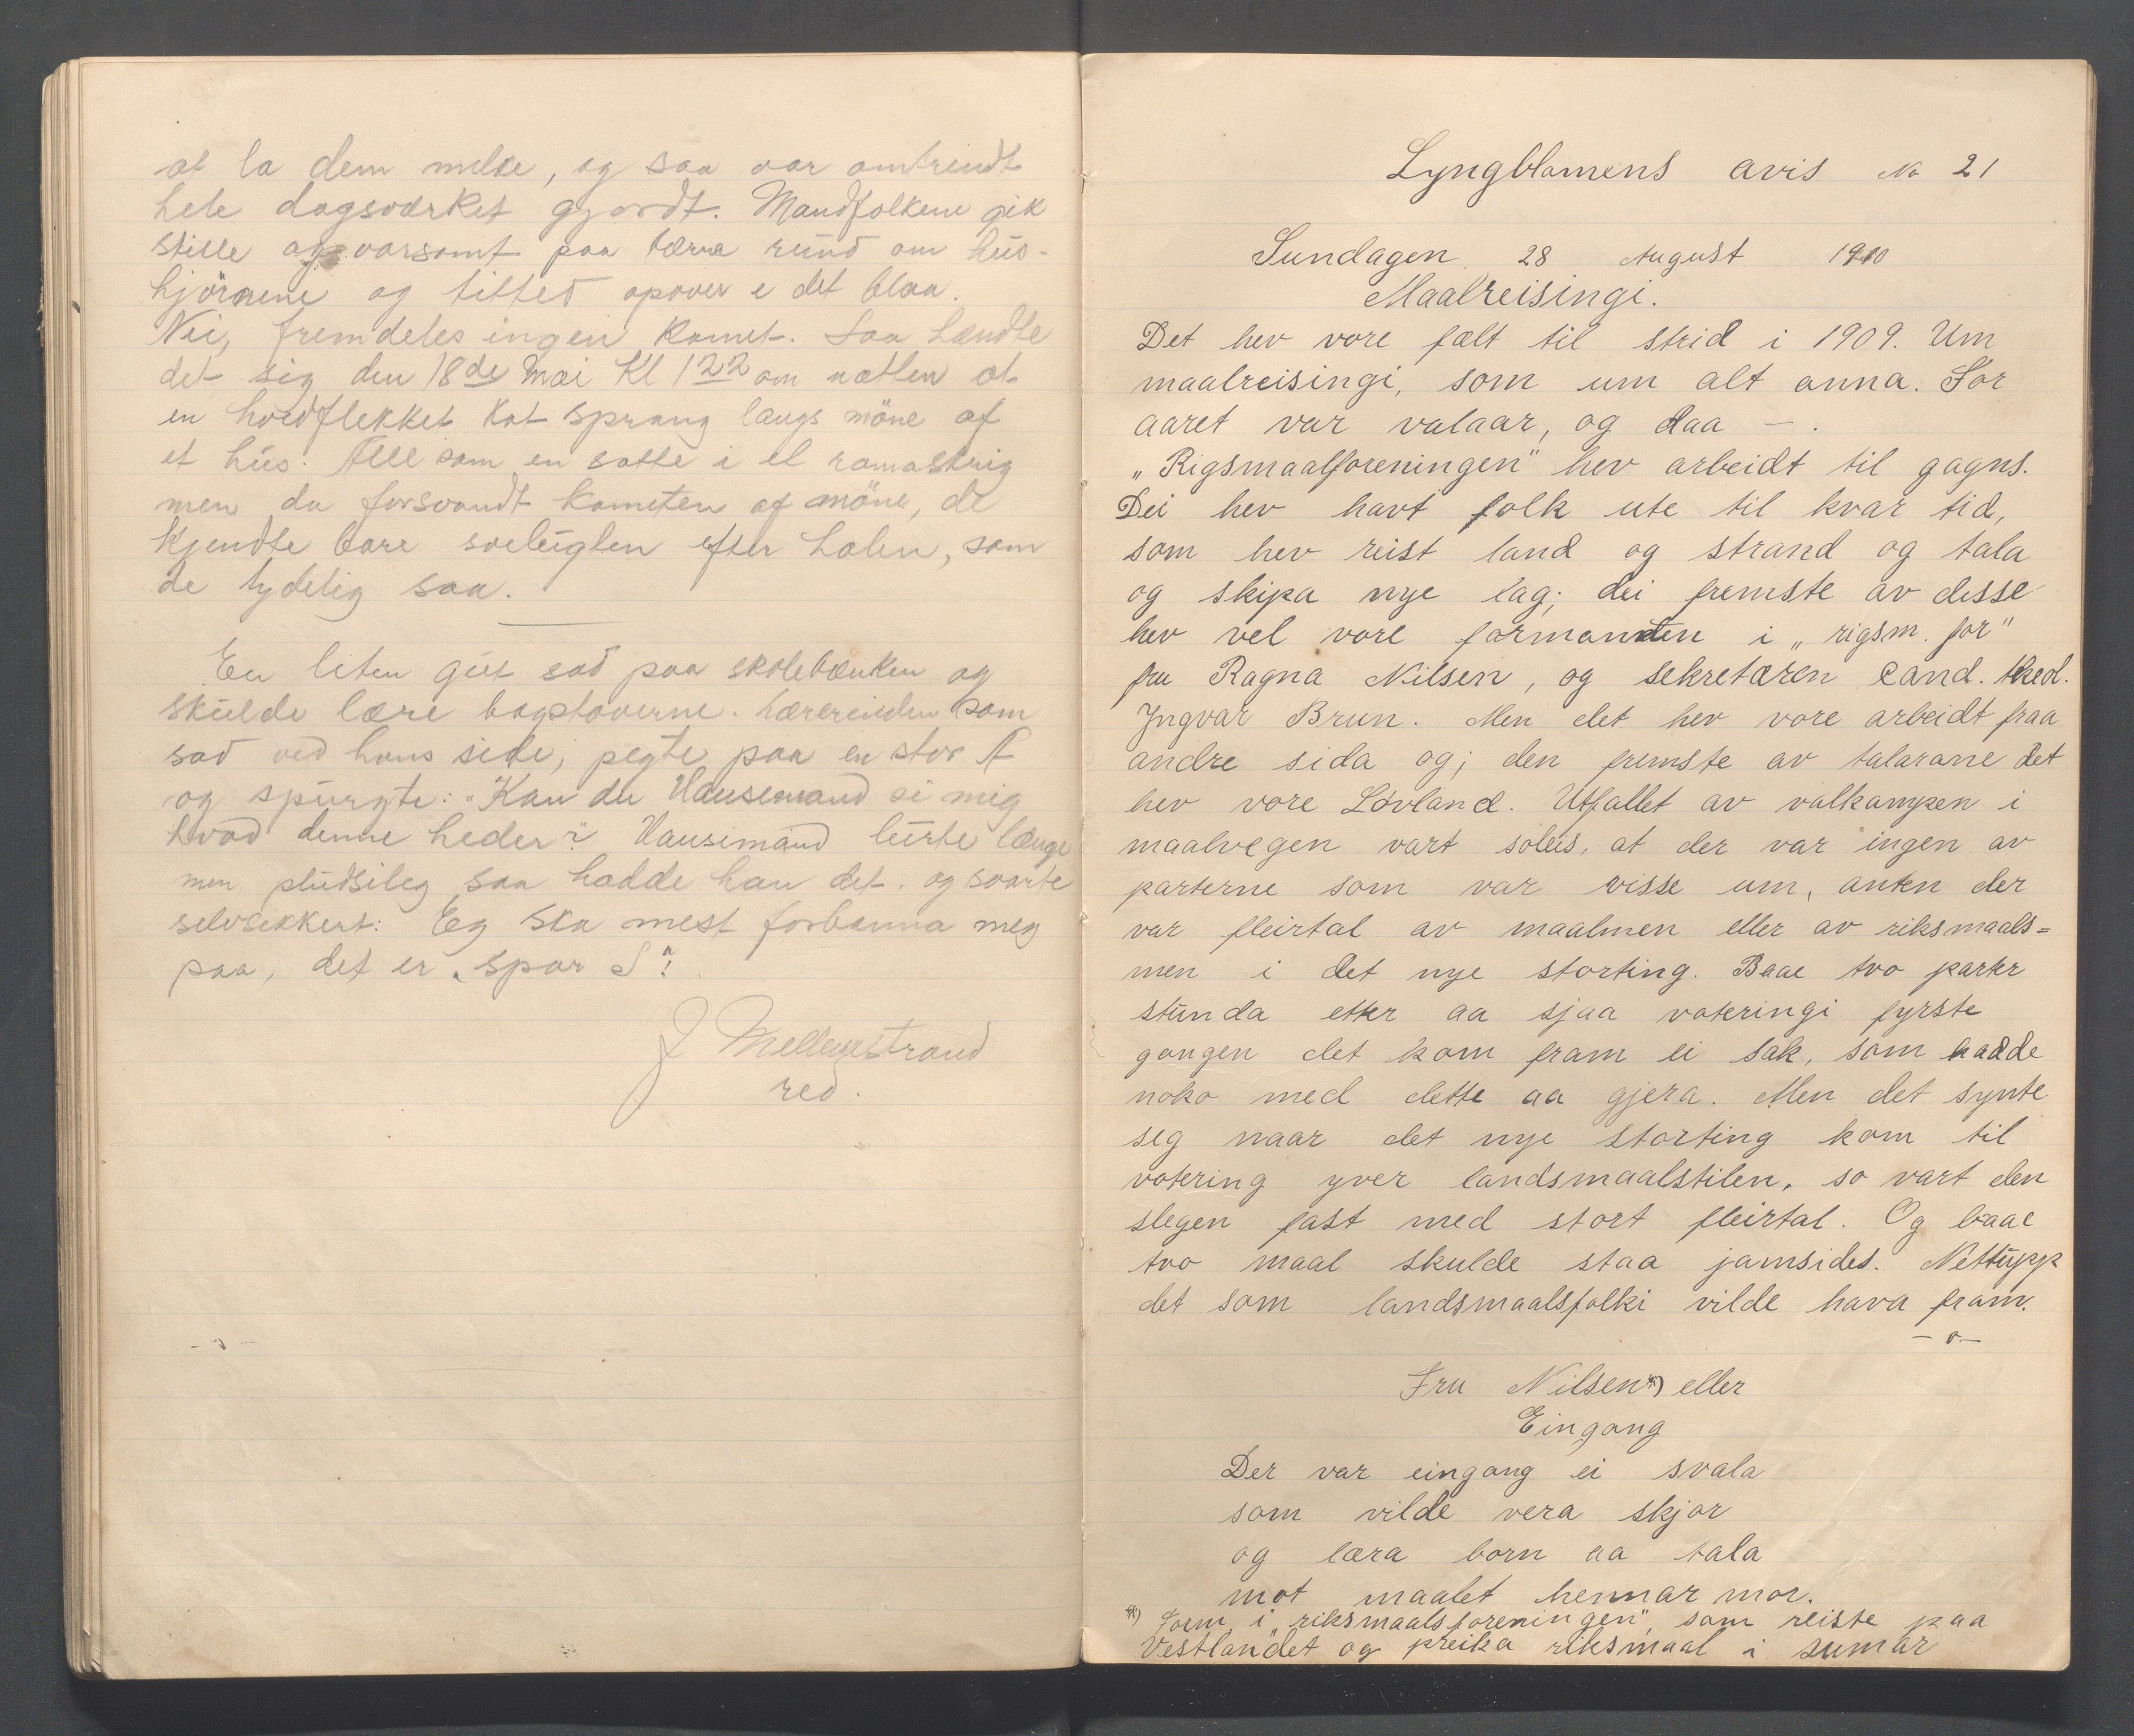 at la dem melke, og saa var omtrendt
hele dagsværket gjordt. Mandfolkene gik
stille og varsomt paa tærne rund om hus-
hjörnene og tittet opover i det blaa.
Nei, fremdeles ingen Komet. Saa hændte
det sig den 18de Mai Kl 122 om natten at
en hvidflekket Kat sprang langs möne af
et hus. Alle som en satte i et ramaskrig
men da forsvandt Kometen af möne, de
Kjendte bare svelugten efter halen, som
de tydelig saa.
En liten gut sad paa skolebænken og
skulde lære bogstaverne. Lærerinden som
sad ved hans side, pegte paa en stor A
og spurgte: "Kan du Vausemand si mig
hvad denne heder"? Vausemand lurte længe
men pludsileg saa hadde han det. og svarte
selvsikkert: Eg ska mest forbanna meg
paa, det er "spar S"!
J Mellemstrand
red.
Lyngblomens avis No 21
Sundagen 28 August 1910
Maalreisingi.
Det hev vore fælt til strid i 1909. Um
maalreisingi, som um alt anna. For
aaret var valaar, og daa — .
„Rigsmaalforeningen" hev arbeidt til gagns.
Dei hev havt folk ute til kvar tid,
som hev reist land og strand og tala
og skipa nye lag; dei fremste av desse
hev vel vore formanden i „rigsm. for"
fru Ragna Nilsen, og sekretæren cand. theol.
Ingvar Brun. Men det hev vore arbeidt fraa
andre sida og; den fremste av talarane det
hev vore Lövland. Utfallet av valkampen i
maalvegen vart soleis, at der var ingen av
parterne som var visse um, anten der
var fleirtal av maalmen eller av riksmaals=
men i det nye storting. Baae tvo parter
stunda etter aa sjaa voteringi fyrste
gongen det kom fram ei sak, som hadde
noko med dette aa gjera. Men det synte
seg naar det nye storting kom til
votering yver landsmaalstilen, so vart den
slegen fast med stort fleirtal. Og baae
tvo maal skulde staa jamsides. Nettupp
det som landsmaalsfolki vilde hava fram.
—o—
Fru Nilsen*) eller
Eingong
Der var eingong ei svala
som vilde vera skjor
og læra born aa tala
mot maalet hennar mor.
*) Form. i „riksmaalsforeningen", som reiste paa
Vestlandet og preika riksmaal i sumar